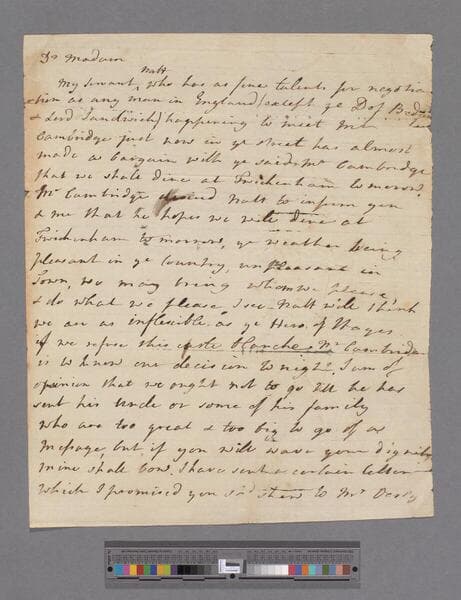 Dr Madam
My servant Natt, who has as fine talents for negotia
tion as any man in England (except ye D of Bedford
& Lord Sandwich) happening to meet Mr
Cambridge just now in ye street has almost
made a bargain with ye said Mr Cambridge
that we shall dine at Twickenham to morrow.
Mr Cambridge desired Natt to inform you
& me that he hopes we will dine at
Twickenham to morrow, ye weather being
pleasant in ye Country, unpleasant in
Town, we may bring whom we please
& do what we please I see Natt will think
we are as inflexible as ye Heros of
if we refuse this carte blanche. Mr Cambridge
is to know our decision to night, I am of
opinion that we ought not to go till he has
sent his Uncle or some of his family
who are too great & too big to go of a
message, but if you will wave your dignity
mine shall bow. I have sent a certain letter
which I promised you shd shew to Mr